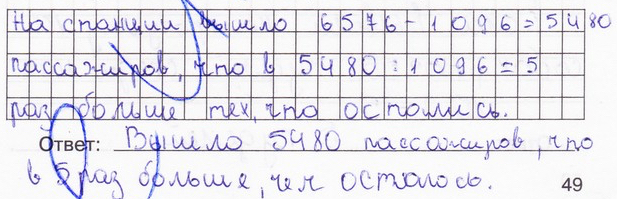 На станции вышло 6576-1096=5480
пассажиров, что в 5480:1096=5
раз больше тех, что остались.
Ответ: Вышло 5480 пассажиров, что
в 5 раз больше, чем осталось.
49